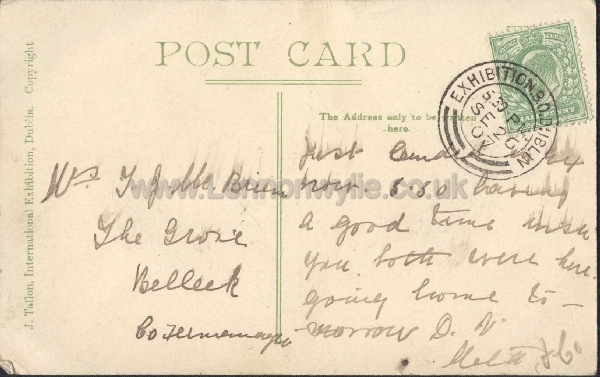 POST CARD
The Address only to be written
here.
J. Tallon, International Exhibition, Dublin. Copyright
EXHIBITION B.O. DUBLIN
PM
SE 20
07
www.Lennonwylie.co.uk
Mrs T J Mc Brien
The Grove
Belleek
Co Fermanagh
Just
now 5.50 having
a good time wish
you both were here
going home to-
morrow D. V